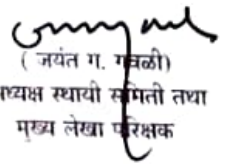 ( जयंत ग. गवळी)
ध्यक्ष स्थायी समिती तथा
मुख्य लेखा परिक्षक